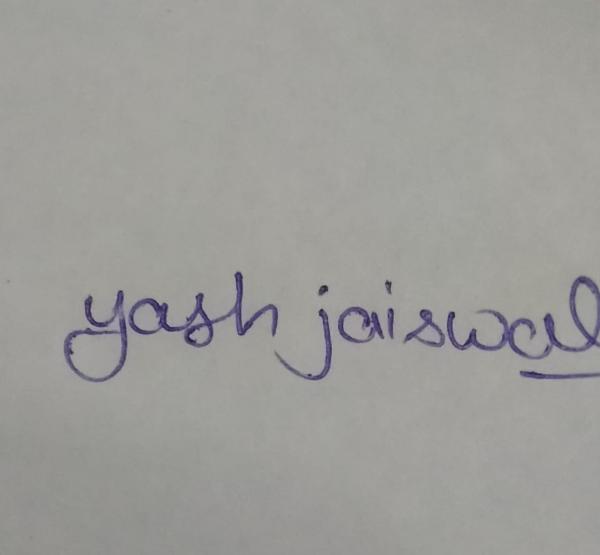 yash jaiswal